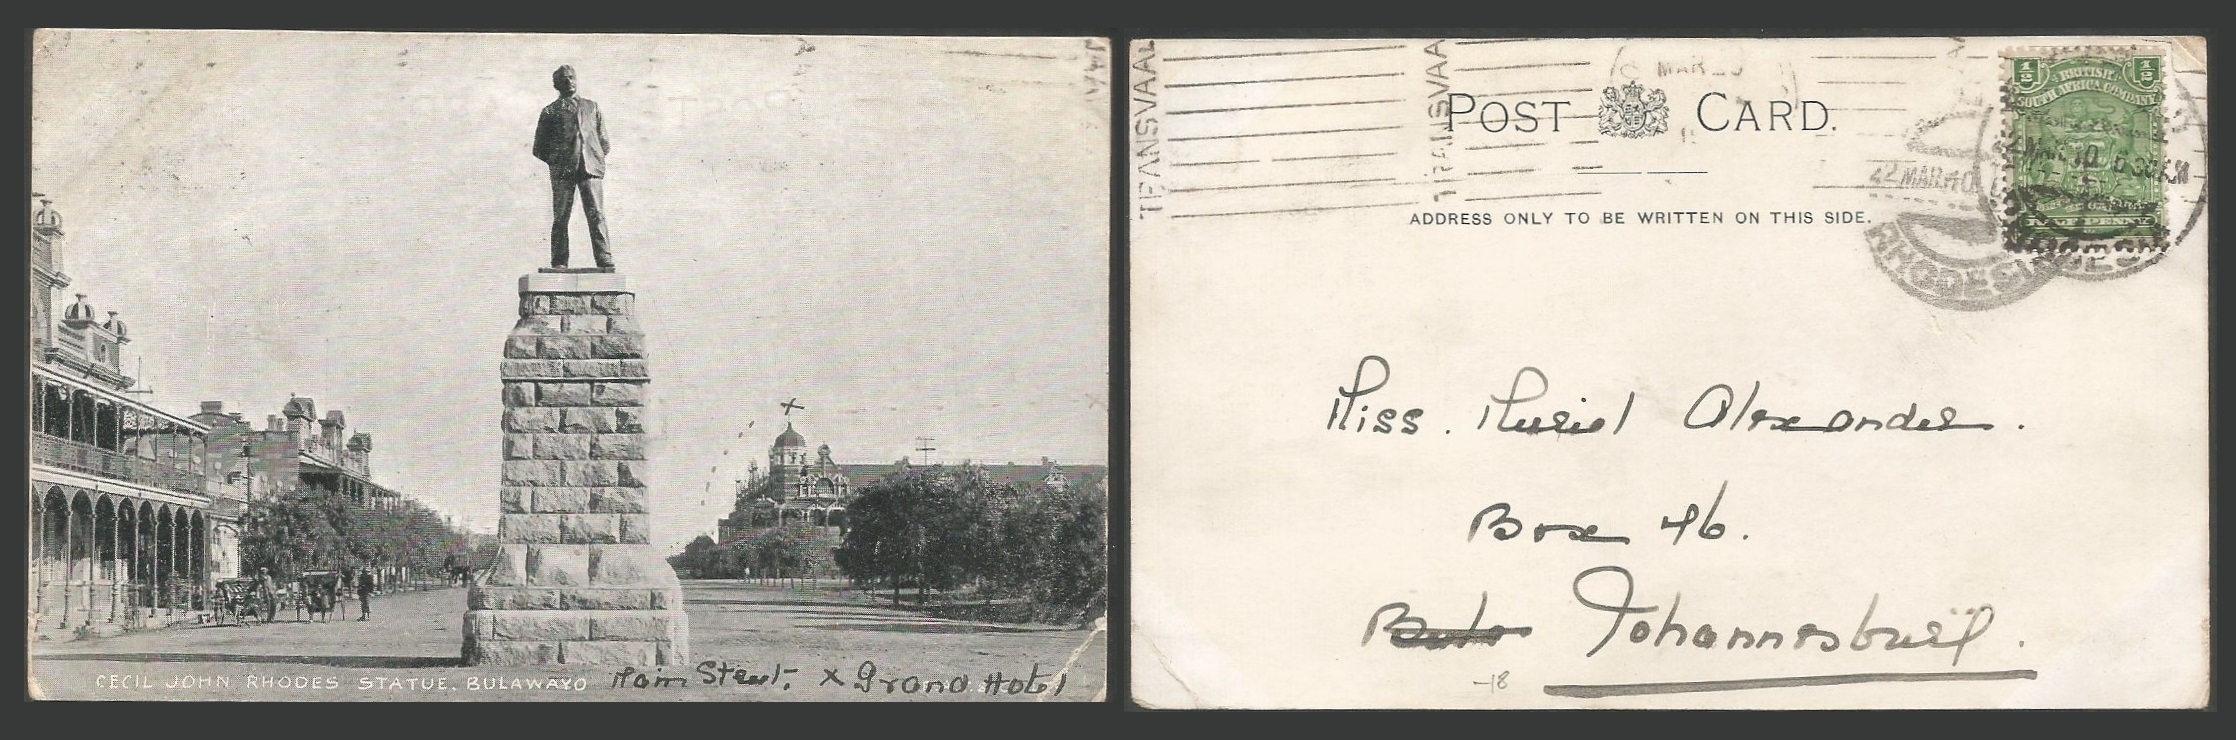 CECIL JOHN RHODES STATUE. BULAWAYO Main Street. x Grand Hotel
TRANSVAAL
TRANSVAAL
MAR 23
POST CARD.
ADDRESS ONLY TO BE WRITTEN ON THIS SIDE.
1/2 BRITISH 1/2
SOUTH AFRICA COMPANY
MAR 10
22 MAR 10
RHODESIA
Miss. Muriel Alexander.
Box 46.
Johannesburg.
-18